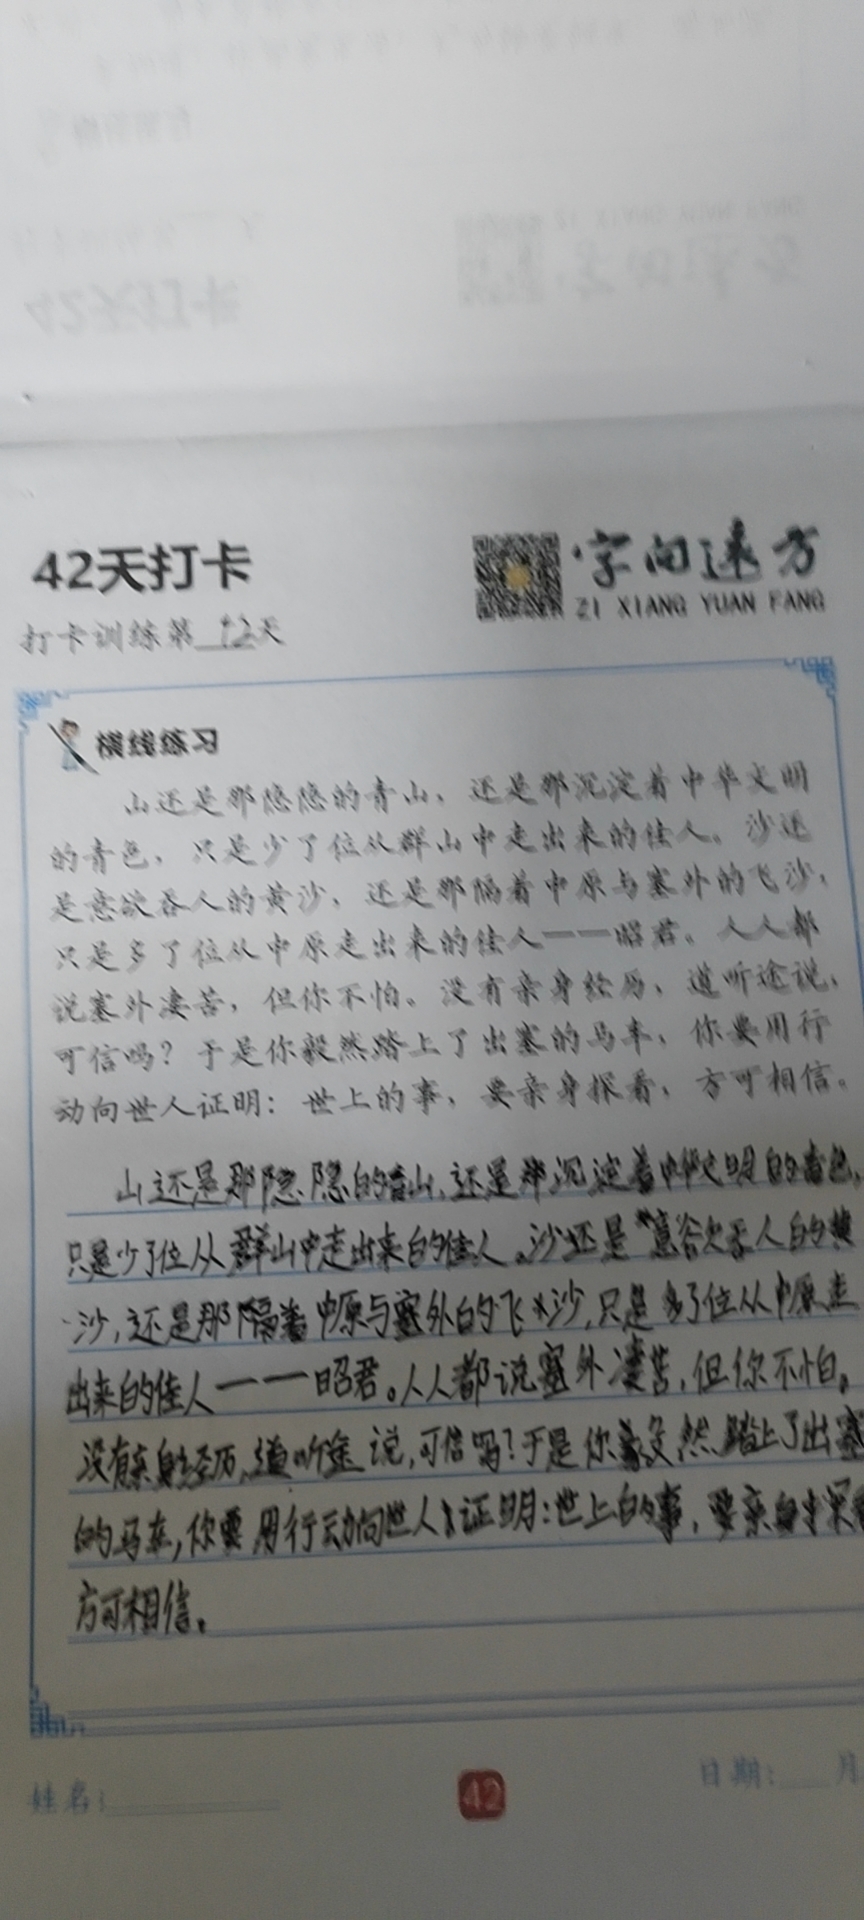 42天打卡
字向远方
ZI XIANG YUAN FANG
打卡训练第42天
横线练习
山还是那隐隐的青山，还是那沉淀着中华文明
的青色，只是少了位从群山中走出来的佳人。沙还
是意欲吞人的黄沙，还是那隔着中原与塞外的飞沙，
只是多了位从中原走出来的佳人——昭君。人人都
说塞外凄苦，但你不怕。没有亲身经历，道听途说，
可信吗？于是你毅然踏上了出塞的马车，你要用行
动向世人证明：世上的事，要亲身探看，方可相信。
山还是那隐隐的青山，还是那沉淀着中华文明的青色，
只是少了位从群山中走出来的佳人。沙还是意欲吞人的黄
沙，还是那隔着中原与塞外的飞沙，只是多了位从中原走
出来的佳人——昭君。人人都说塞外凄苦，但你不怕。
没有亲身经历，道听途说，可信吗？于是你毅然踏上了出塞
的马车，你要用行动向世人证明：世上的事，要亲身探看
方可相信。
姓名：
42
日期： 月